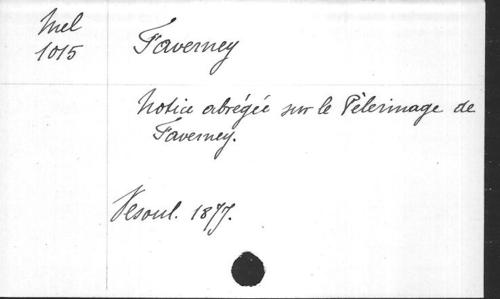 Mel
1015
Faverney
Notice abrégée sur le Pèlerinage de
Faverney.
Vesoul. 1877.